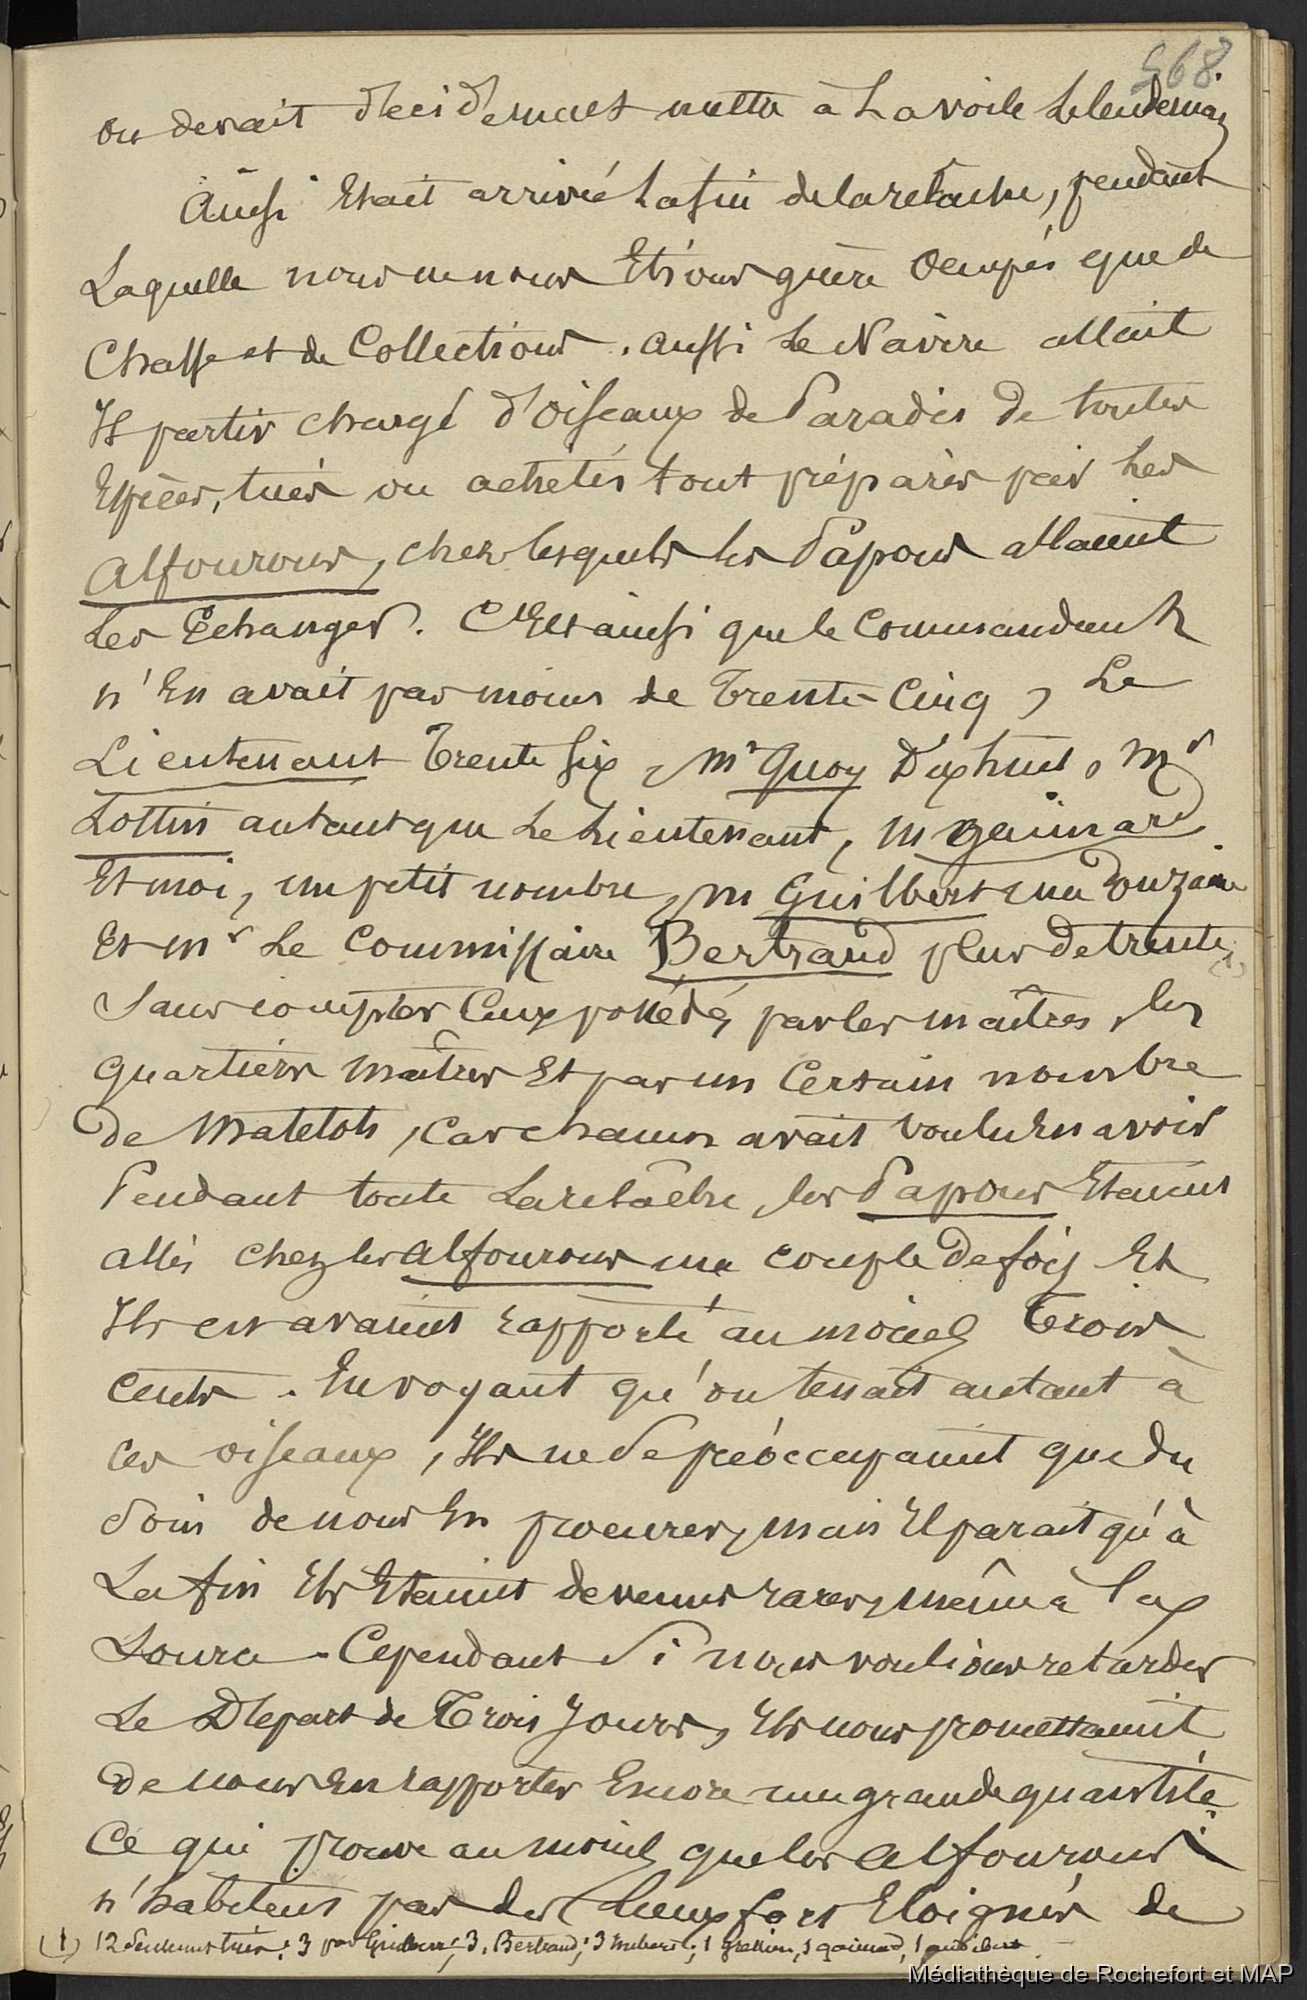 568
on devait décidément mettre à La voile Lelendemain
Ainsi Etait arrivée Lafin delarelache, pendant
Laquelle nous ne nous Etions guère Occupés que de
Chasse et de Collections. aussi Le Navire allait
Il partir chargé d'Oiseaux de Paradis de toutes
Espèces, tués ou achetés tout préparés par Les
Alfourous, chez lesquels les Papous allaient
Les Echanger. C'Est ainsi que le Commandant
n'En avait pas moins de Trente-Cinq, Le
Lieutenant Trente Six, Mr Quoy Dixhuit, Mr
Lottin autant que Le Lieutenant, M gaimard
Et moi, un petit nombre, M Guilbert une Douzaine
Et Mr Le Commissaire Bertrand plus de trente, (1)
Sans compter Ceux possédés par les maîtres, les
quartiers maîtres Et par un Certain nombre
de Matelots, Car chacun avait voulu En avoir
Pendant toute La relâche, les Papous Etaient
allés chez les Alfourous une couple de fois Et
Ils en avaient rapporté au moins Trois
cents. En voyant qu'on tenait autant à
Ces oiseaux, Ils ne Se préoccupaient que du
Soin de nous En procurer, mais Il parait qu'à
La fin Ils Etaient devenus rares, même à
Cependant Si nous voulions retarder
Le Départ de Trois Jours, Ils nous promettaient
de nous En rapporter Encore une grande quantité.
Ce qui prouve au moins que les Alfourous
n'habitent pas des Lieux fort Eloignés de
(1) 12 Seulement tués: 3 par Guilbert; 3, Bertrand; 3 ; 1 , 1 gaimard, 1
Médiathèque de Rochefort et MAP